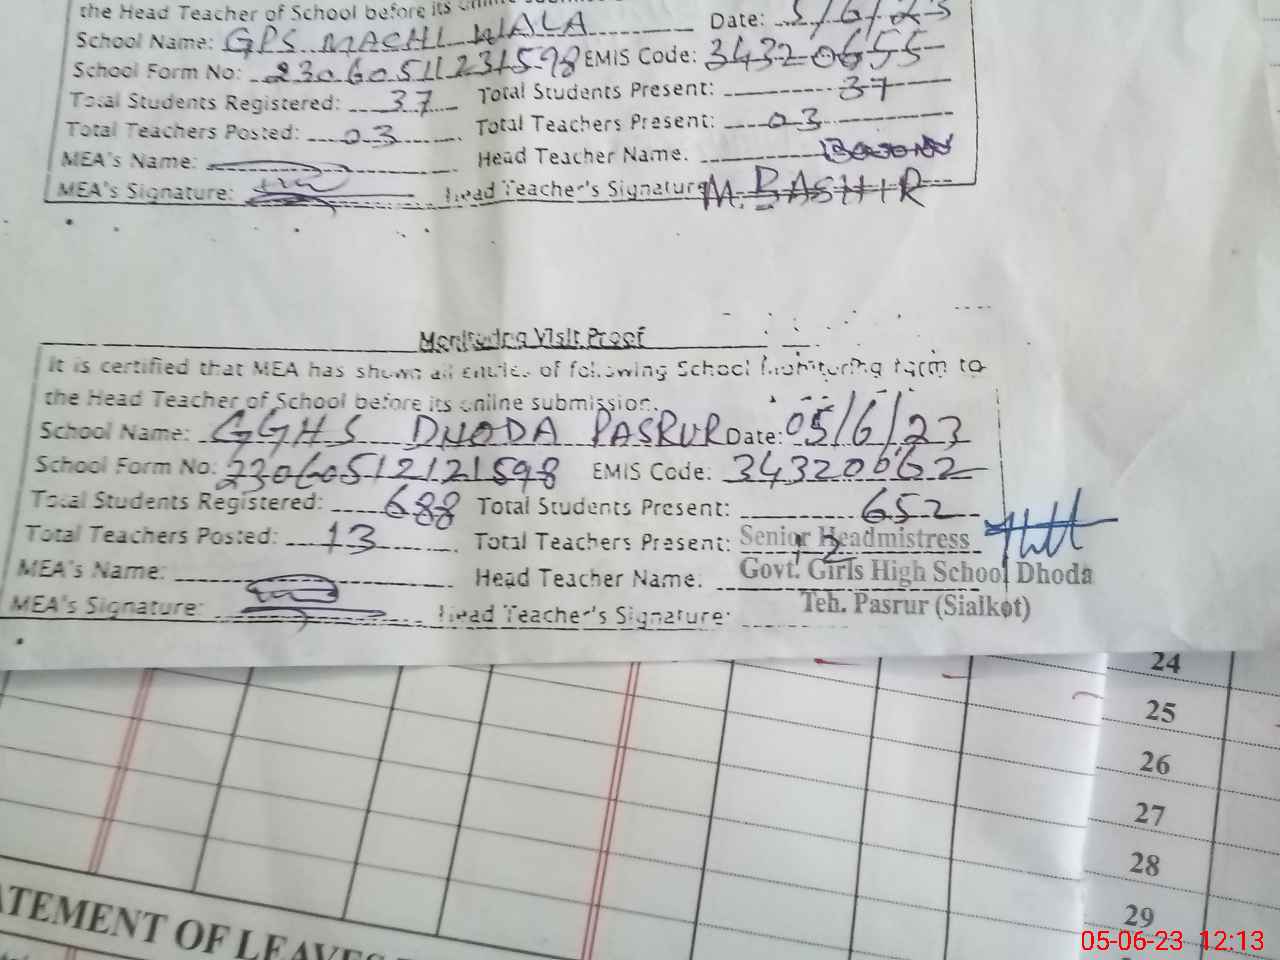 the Head Teacher of School before its online
School Name: GPS MACHI WALA Date: 5/6/23
School Form No: 23060511231598 EMIS Code: 34320655
Total Students Registered: 37 Total Students Present: 37
Total Teachers Posted: 03 Total Teachers Present: 03
MEA's Name: Head Teacher Name.
MEA's Signature: Head Teacher's Signature M. BASHIR
Monitoring Visit Proof
It is certified that MEA has shown all entries of following School Monitoring form to
the Head Teacher of School before its online submission.
School Name: GGHS DHODA PASRUR Date: 05/6/23
School Form No: 23060512121598 EMIS Code: 34320662
Total Students Registered: 688 Total Students Present: 652
Total Teachers Posted: 13 Total Teachers Present: 12
Senior Headmistress
MEA's Name: Head Teacher Name:
Govt. Girls High School Dhoda
MEA's Signature: Head Teacher's Signature:
Teh. Pasrur (Sialkot)
24
25
26
27
28
29
ATEMENT OF LEAVES
05-06-23 12:13